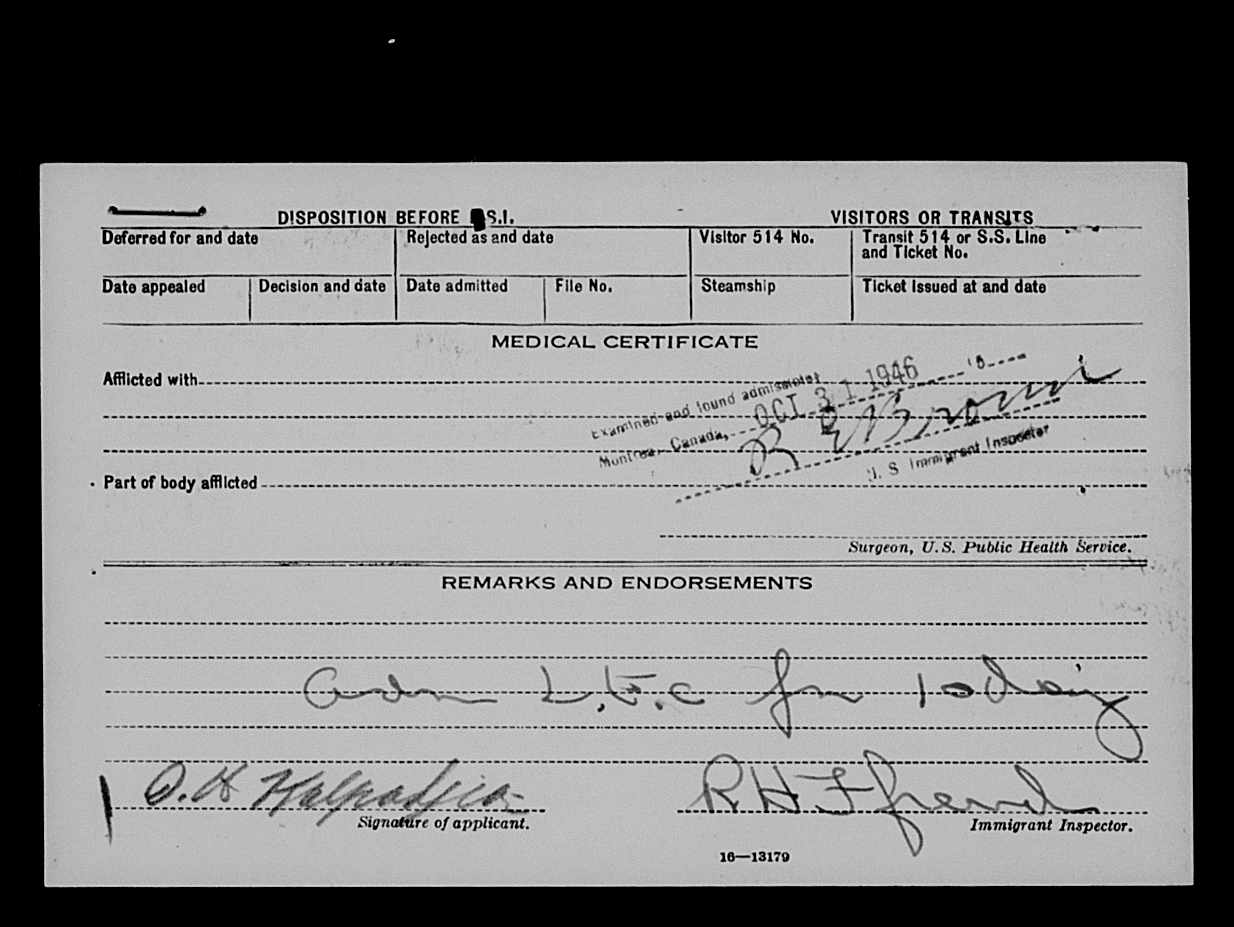 DISPOSITION BEFORE S.I.
VISITORS OR TRANSITS
Deferred for and date
Rejected as and date
Visitor 514 No.
Transit 514 or S.S. Line
and Ticket No.
Date appealed
Decision and date
Date admitted
File No.
Steamship
Ticket Issued at and date
MEDICAL CERTIFICATE
Afflicted with
Examined and found admissible
Montreal, Canada, OCT 31 1946
U. S. Immigrant Inspector
Part of body afflicted
Surgeon, U.S. Public Health Service.
REMARKS AND ENDORSEMENTS
for 10 days
Signature of applicant.
Immigrant Inspector.
16—13179